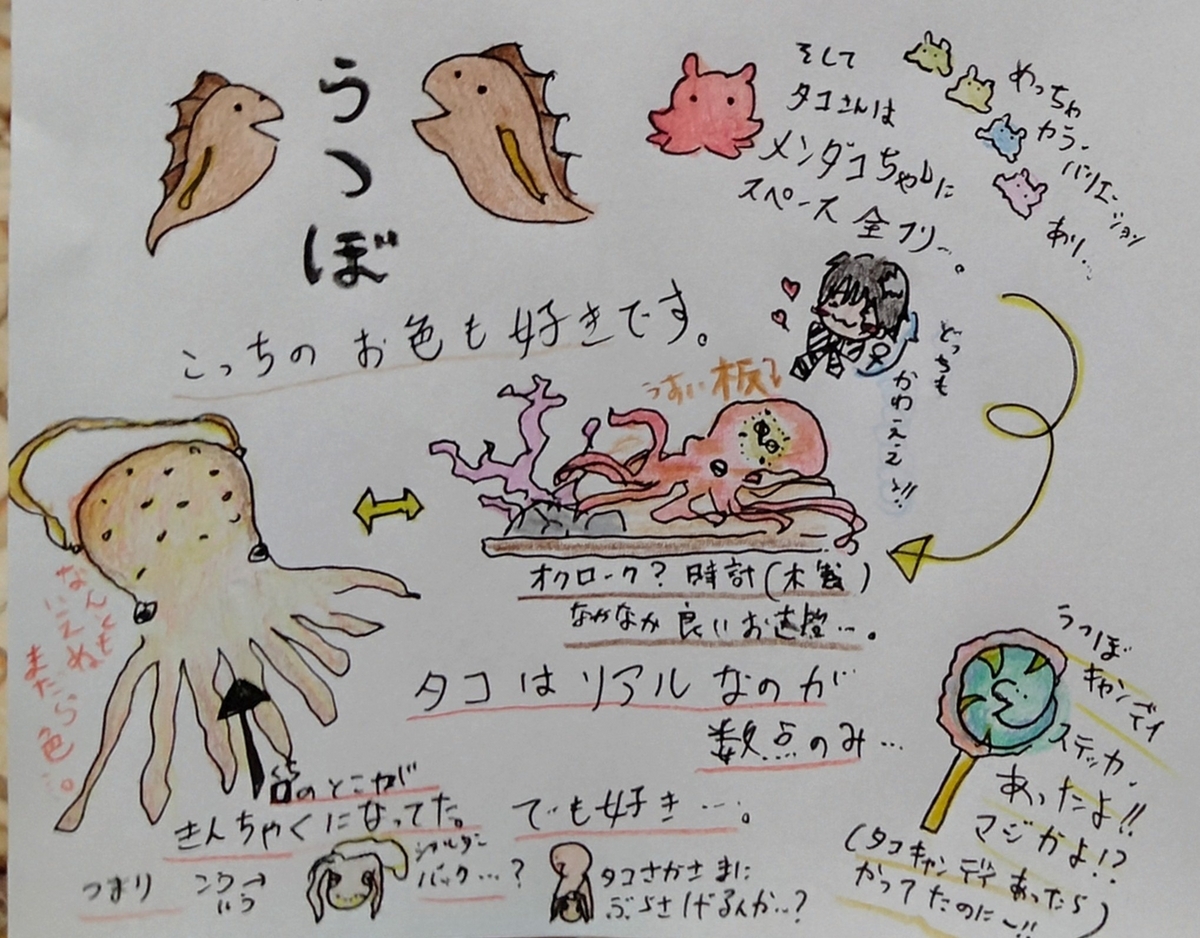 うつぼ
こっちの お色も好きです。
そして
タコさんは
メンダコちゃんに
スペース 全フリ…。
めっちゃ
カラー
バリエーション
あり…
どっちも
かわええと!!
うすい板
オクロック? 時計(木製)
なかなか 良いお造型…。
タコはリアル なのが
数点のみ…
でも好き…。
なんとも
いえぬ
まだら色…。
口のとこやが
きんちゃくになってた。
つまり
こういう→
ショルダー
バック…?
タコさかさまに
ぶらさげるんか…?
うつぼ
キャンディ
ステッカー
あったよ!!
マジかよ!?
(タコキャンディあったら
かってたのにー!!)